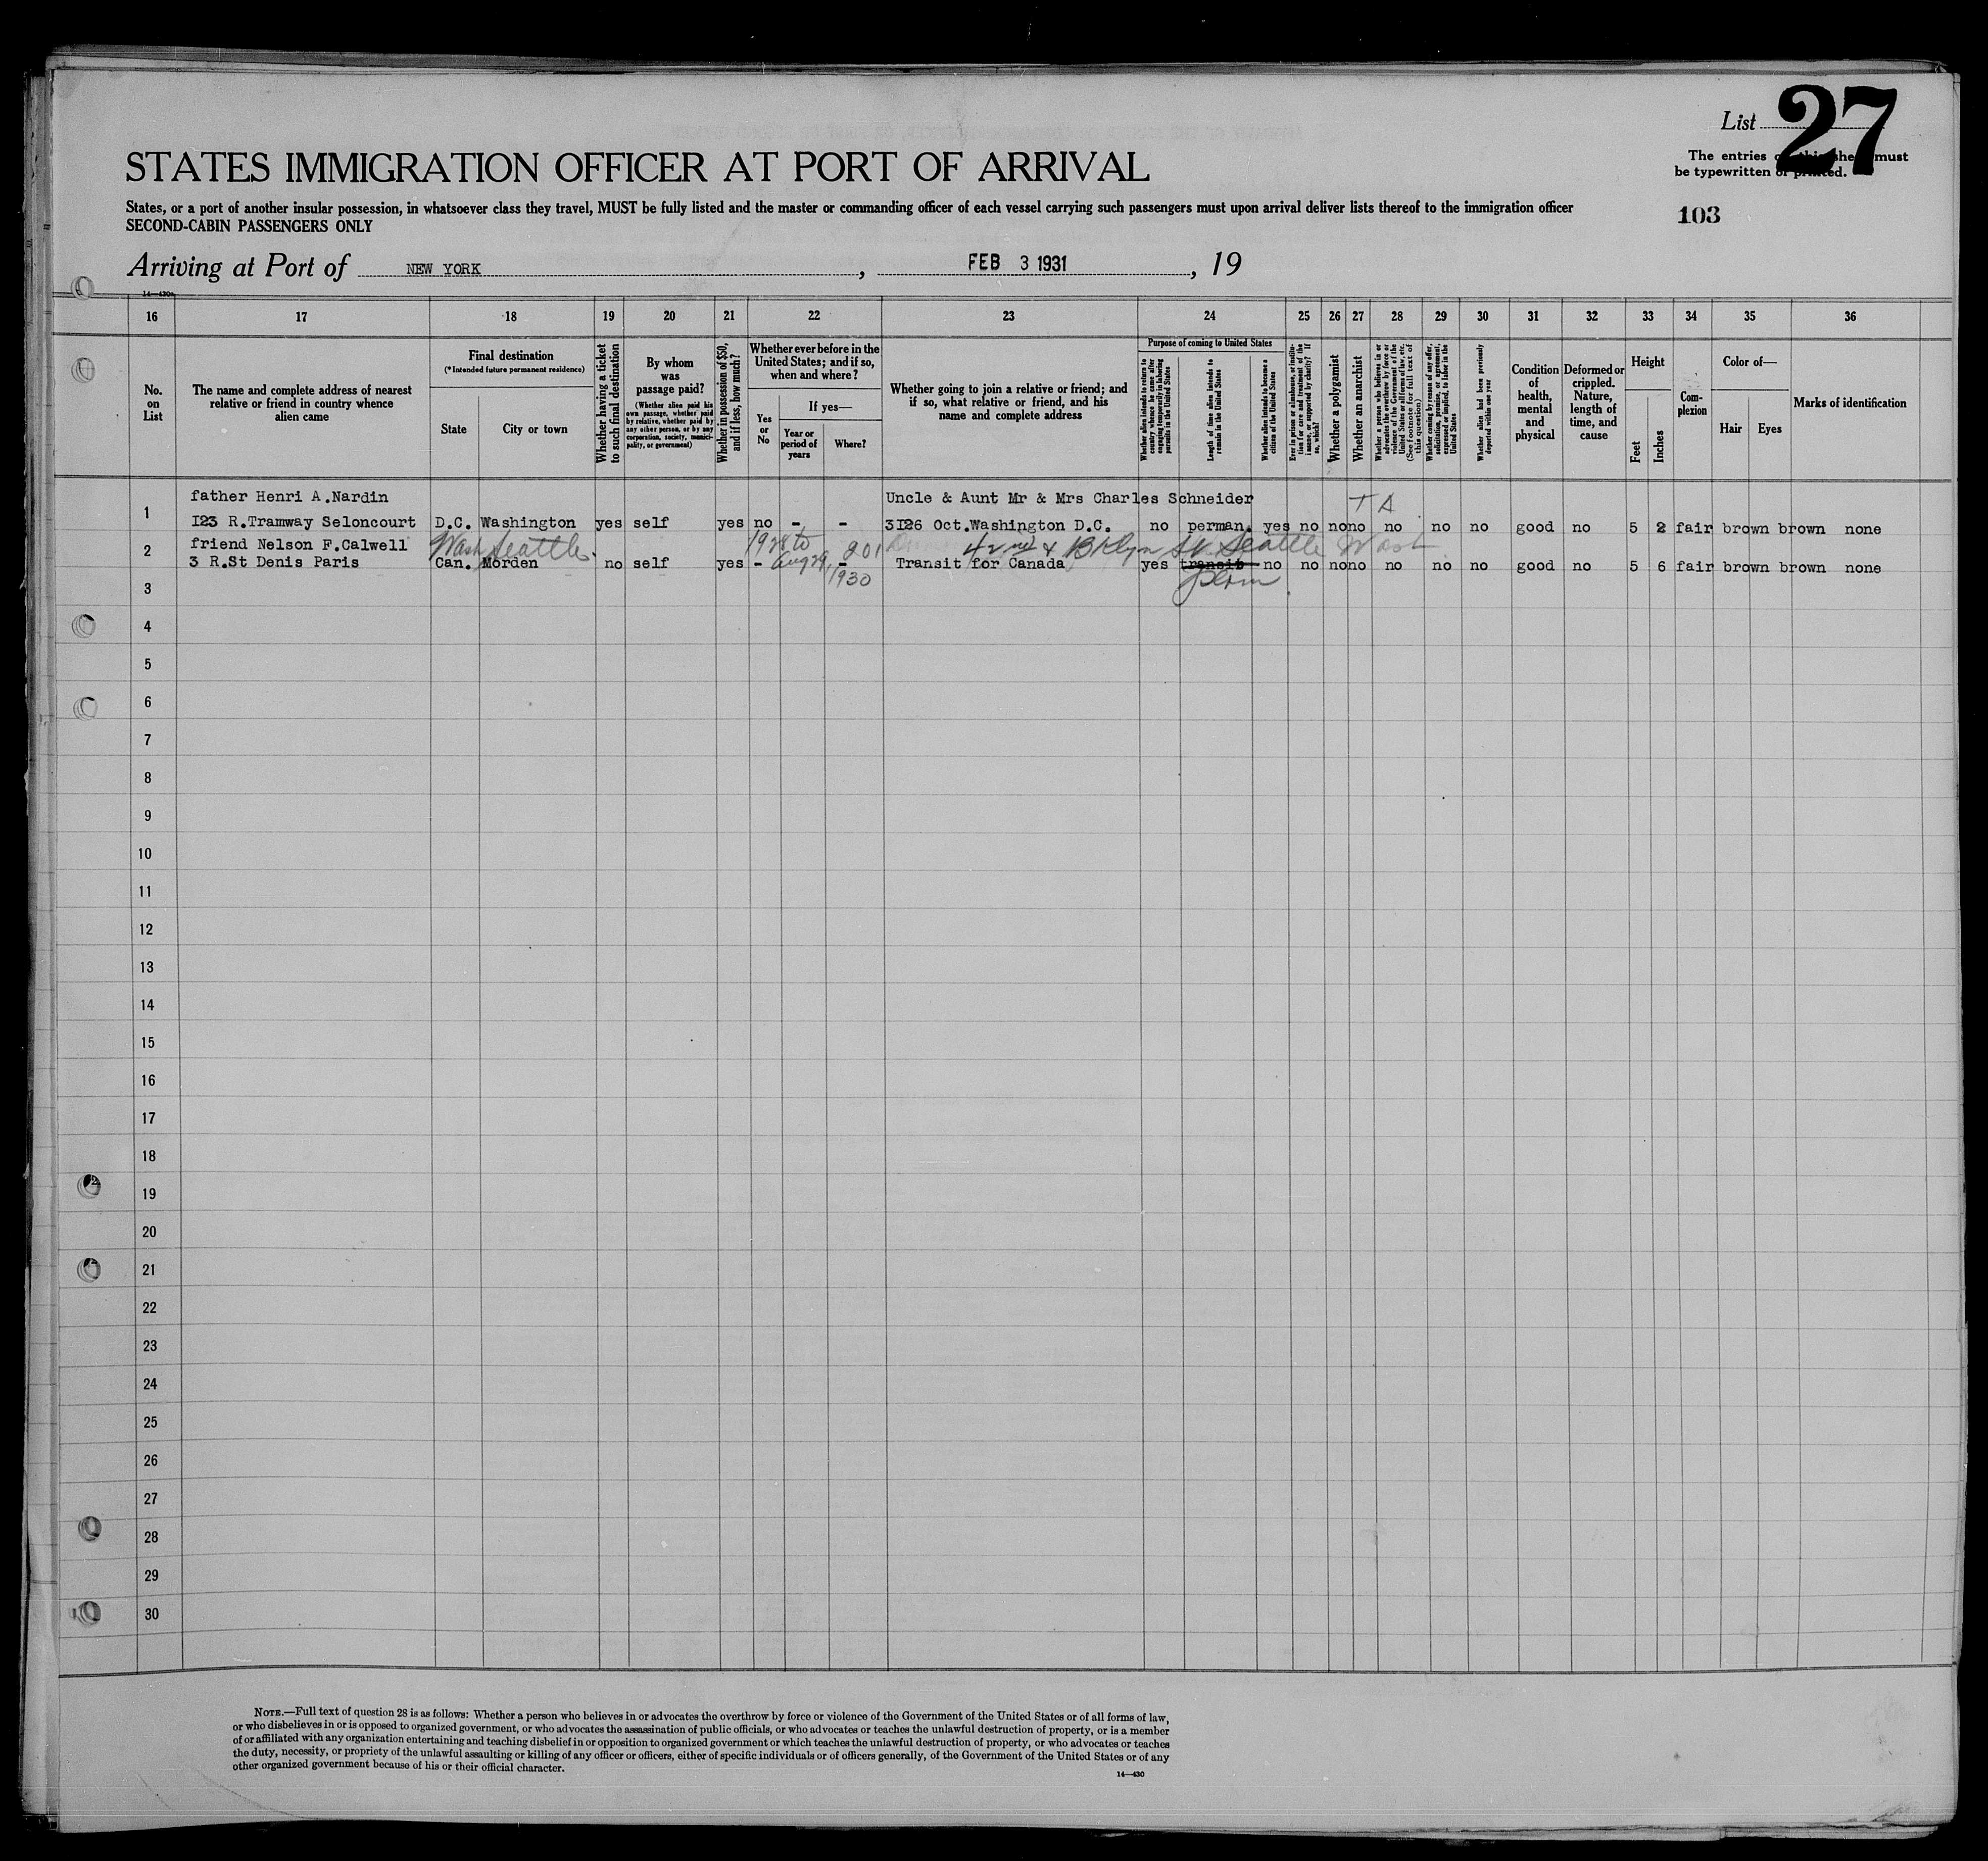 List 27
The entries on this sheet must
be typewritten or printed.
STATES IMMIGRATION OFFICER AT PORT OF ARRIVAL
103
States, or a port of another insular possession, in whatsoever class they travel, MUST be fully listed and the master or commanding officer of each vessel carrying such passengers must upon arrival deliver lists thereof to the immigration officer
SECOND-CABIN PASSENGERS ONLY
Arriving at Port of NEW YORK, FEB 3 1931, 19
14—430a
16 17 18 19 20 21 22 23 24 25 26 27 28 29 30 31 32 33 34 35 36
No. on List
The name and complete address of nearest relative or friend in country whence alien came
Final destination
(*Intended future permanent residence)
State
City or town
Whether having a ticket to such final destination
By whom was passage paid?
(Whether alien paid his own passage, whether paid by relative, whether paid by any other person, or by any corporation, society, municipality, or government)
Whether in possession of $50, and if less, how much?
Whether ever before in the United States; and if so, when and where?
Yes or No
If yes—
Year or period of years
Where?
Whether going to join a relative or friend; and if so, what relative or friend, and his name and complete address
Purpose of coming to United States
Whether alien intends to return to country whence he came after engaging temporarily in laboring pursuits in the United States
Length of time alien intends to remain in the United States
Whether alien intends to become a citizen of the United States
Ever in prison or almshouse, or institution for care and treatment of the insane, or supported by charity? If so, which?
Whether a polygamist
Whether an anarchist
Whether a person who believes in or advocates the overthrow by force or violence of the Government of the United States or all forms of law, etc. (See footnote for full text of this question)
Whether coming by reason of any offer, solicitation, promise, or agreement, expressed or implied, to labor in the United States
Whether alien had been previously deported within one year
Condition of health, mental and physical
Deformed or crippled. Nature, length of time, and cause
Height
Feet
Inches
Complexion
Color of—
Hair
Eyes
Marks of identification
father Henri A.Nardin Uncle & Aunt Mr & Mrs Charles Schneider T A
1 123 R.Tramway Seloncourt D.C. Washington yes self yes no - - 3126 Oct.Washington D.C. no perman. yes no no no no no no good no 5 2 fair brown brown none
friend Nelson F.Calwell Wash Seattle 1928 to 201 42nd & Bklyn St. Seattle Wash
2 3 R.St Denis Paris Can. Morden no self yes - Aug 29, - Transit for Canada yes transit no no no no no no no good no 5 6 fair brown brown none
1930
3
4
5
6
7
8
9
10
11
12
13
14
15
16
17
18
19
20
21
22
23
24
25
26
27
28
29
30
NOTE.—Full text of question 28 is as follows: Whether a person who believes in or advocates the overthrow by force or violence of the Government of the United States or of all forms of law,
or who disbelieves in or is opposed to organized government, or who advocates the assassination of public officials, or who advocates or teaches the unlawful destruction of property, or is a member
of or affiliated with any organization entertaining and teaching disbelief in or opposition to organized government or which teaches the unlawful destruction of property, or who advocates or teaches
the duty, necessity, or propriety of the unlawful assaulting or killing of any officer or officers, either of specific individuals or of officers generally, of the Government of the United States or of any
other organized government because of his or their official character.
14—430